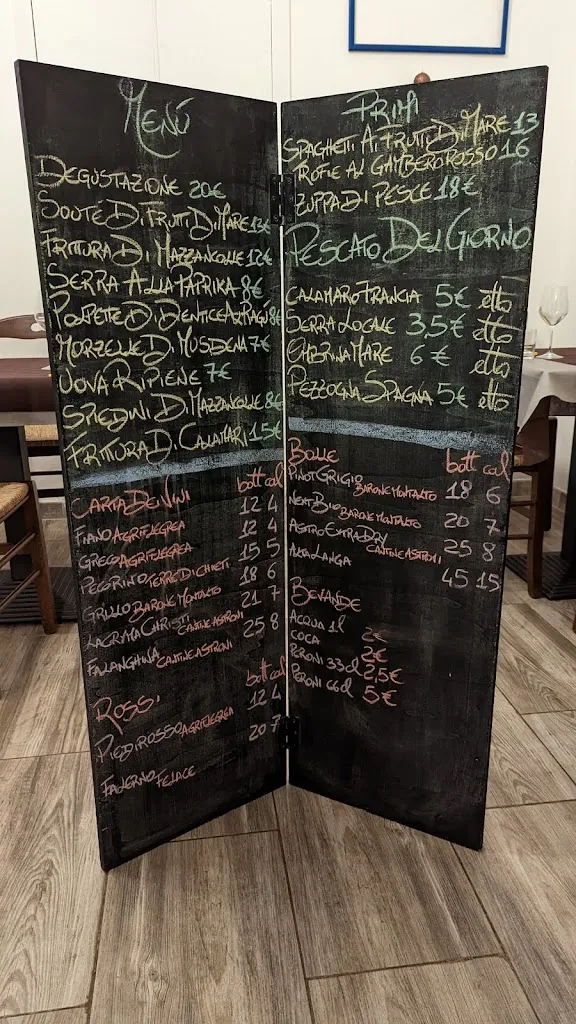 Menù
Degustazione 20€
Soutè Di Frutti Di Mare 13€
Frittura Di Mazzancolle 12€
Serra Alla Paprika 8€
Polpette Di Dentice Al Ragù 8€
Morzelle Di Musdena 7€
Uova Ripiene 7€
Spiedini Di Mazzancolle 8€
Frittura Di Calamari 15€
Carta Dei Vini bott cal
Fiano Agriflegrea 12 4
Greco Agriflegrea 12 4
Pecorino Terre Di Chieti 15 5
Grillo Barone Montalto 18 6
Lacryma Christi Cantine Astroni 21 7
Falanghina Cantine Astroni 25 8
Rossi bott cal
Piedirosso Agriflegrea 12 4
Falerno Felace 20 7
Primi
Spaghetti Ai Frutti Di Mare 13
Trofie Al Gambero Rosso 16
Zuppa Di Pesce 18€
Pescato Del Giorno
Calamaro Francia 5€ etto
Serra Locale 3,5€ etto
Ombrina Mare 6€ etto
Pezzogna Spagna 5€ etto
Bolle bott cal
Pinot Grigio Barone Montalto 18 6
Next Bio Barone Montalto 20 7
Astro Extra Dry Cantine Astroni 25 8
Alta Langa 45 15
Bevande
Acqua 1l 2€
Coca 2€
Peroni 33cl 2,5€
Peroni 66cl 5€